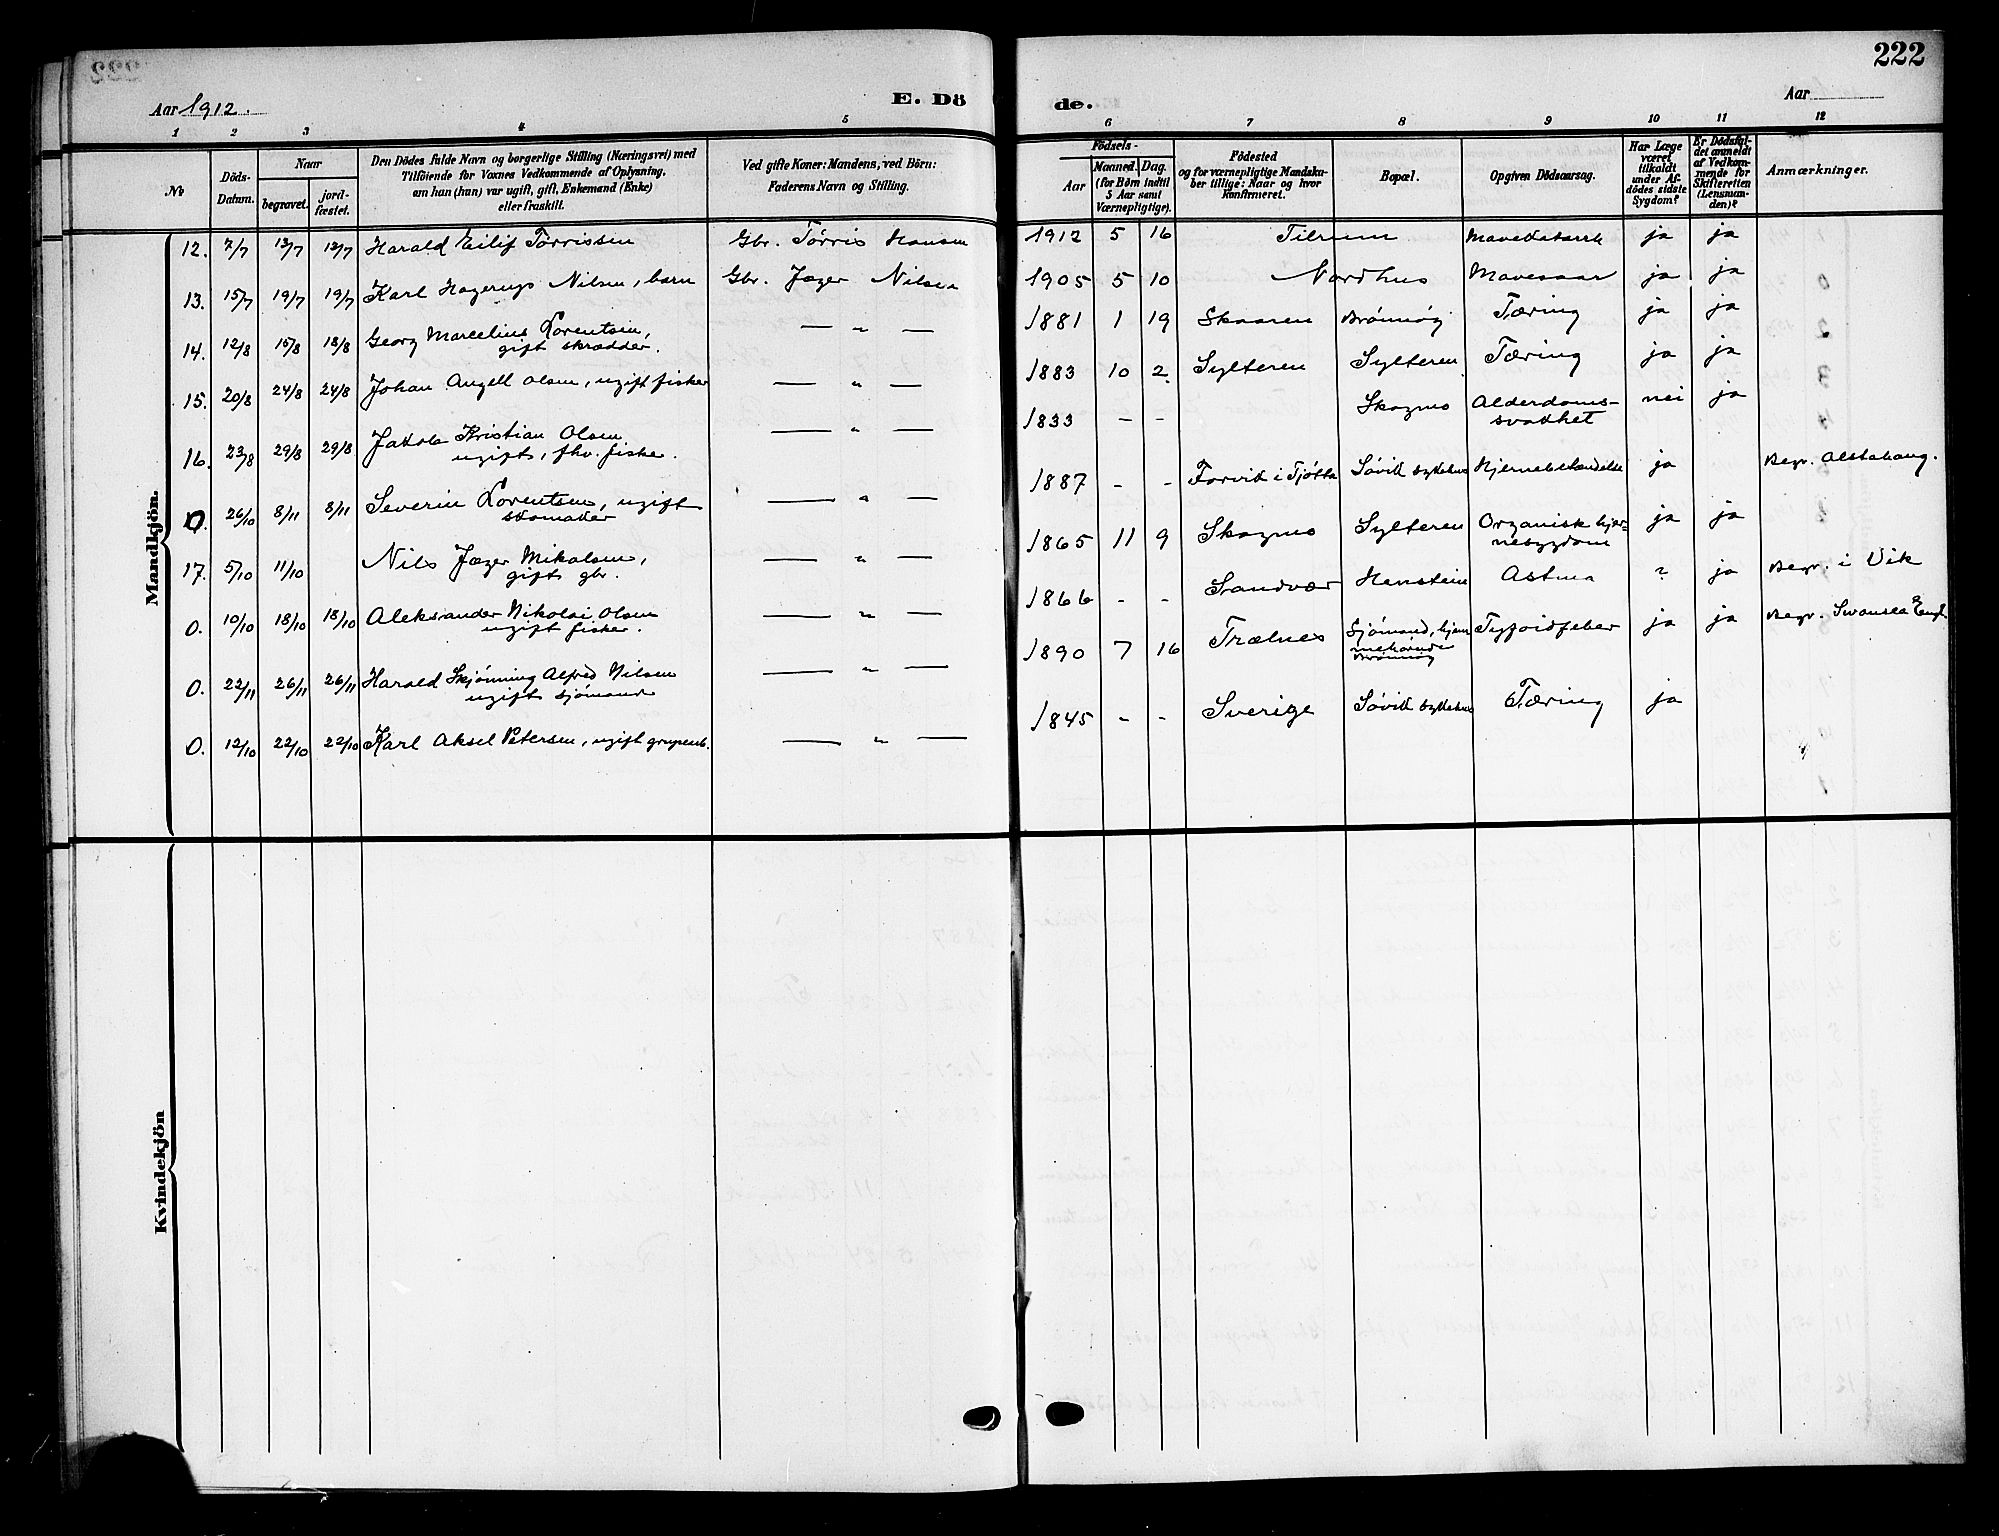 222
Aar 1912.
E. Dö de.
Aar
1 2 3 4 5 6 7 8 9 10 11 12
No
Döds-Datum.
Naar
begravet.
jord-fæstet.
Den Dödes fulde Navn og borgerlige Stilling (Næringsvei) med
Tilföiende for Voxnes Vedkommende af Oplysning,
om han (hun) var ugift, gift, Enkemand (Enke)
eller fraskilt.
Ved gifte Koner: Mandens, ved Börn:
Faderens Navn og Stilling.
Födsels-
Aar
Maaned. Dag.
(for Börn indtil
5 Aar samt
Værnepligtige).
Födested
og for værnepligtige Mandska-
ber tillige: Naar og hvor
konfirmeret.
Bopæl.
Opgiven Dödsaarsag.
Har Læge
været
tilkaldt
under Af-
dödes sidste
Sygdom?
Er Dödsfal-
det anmeldt
af Vedkom-
mende for
Skifteretten
(Lensman-
den)?
Anmærkninger.
Mandkjön.
12. 7/7 13/7 13/7 Harald Eilif Tørrissen Gbr. Tørris Hansen 1912 5 16 Tilrum Mavekatarrh ja ja
13. 15/7 19/7 19/7 Karl Hagerup Nilsen, barn Gbr. Jæger Nilsen 1905 5 10 Nordhus Mavesaar ja ja
14. 12/8 15/8 18/8 Georg Marcelius Lorentsen, — „ — 1881 1 19 Skaaren Brønnøy Tæring ja ja
gift skrædder.
15. 20/8 24/8 24/8 Johan Angell Olsen, ugift fisker — „ — 1883 10 2 Sylteren Sylteren Tæring ja ja
16. 23/8 29/8 29/8 Jakob Kristian Olsen — „ — 1833 - - Skogmo Alderdoms- nei ja
ugift, fhv. fisker. svakhet
0. 26/10 8/11 8/11 Severin Lorentsen, ugift — „ — 1887 - - Forvik i Tjøtta Søvik sykehus Hjernebetændelse ja Begr. Alstahaug.
skomaker
17. 5/10 11/10 Nils Jæger Mikalsen, — „ — 1865 11 9 Skogmo Sylteren Organisk hjer- ja ja
gift gbr. nesygdom
0. 10/10 18/10 18/10 Aleksander Nikolai Olsen — „ — 1866 - - Sandvær Henstein Astma ? ja Begr. i Vik
ugift fisker.
0. 22/11 26/11 26/11 Harald Skjønning Alfred Nilsen — „ — 1890 7 16 Trælnes Sjømand, hjem Tyfoidfeber ja ja Begr. Swansea Engl.
ugift sjømand mehørende
Brønnøy
0. 12/10 22/10 22/10 Karl Aksel Petersen, ugift grubearb. — „ — 1845 - - Sverige Søvik sykehus Tæring ja
Kvindekjön